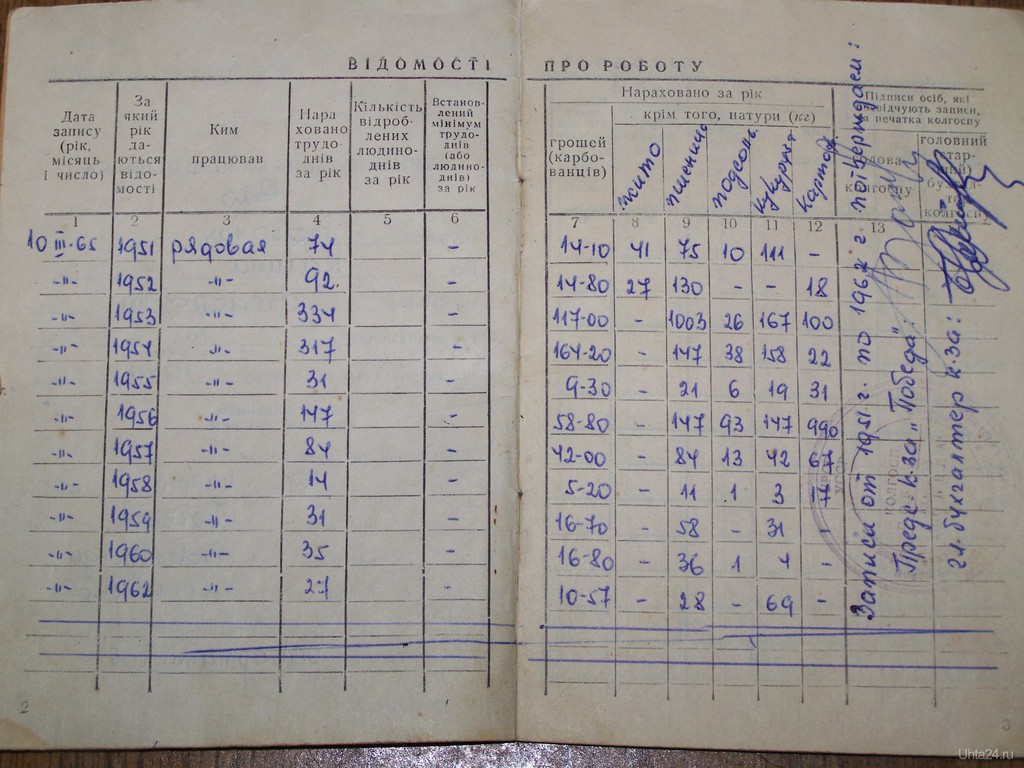 ВІДОМОСТІ ПРО РОБОТУ
Дата запису (рік, місяць і число)
За який рік да- ються відо- мості
Ким працював
Нара ховано трудо- днів за рік
Кількість відроб- лених людино- днів за рік
Встанов- лений мінімум трудо- днів (або людино- днів) за рік
Нараховано за рік
грошей (карбо- ванців)
крім того, натури (кг)
жито
пшениц
подсолн.
кукуруза
картоф.
Підписи осіб, які записи, печатка колгоспу
колгоспу
головний
1 2 3 4 5 6 7 8 9 10 11 12 13
10 III-65 1951 рядовая 74 – 14-10 41 75 10 111 –
-"- 1952 -"- 92. – 14-80 27 130 – – 18
-"- 1953 -"- 334 – 117-00 – 1003 26 167 100
-"- 1954 -"- 317 – 164-20 – 147 38 158 22
-"- 1955 -"- 31 – 9-30 – 21 6 19 31
-"- 1956 -"- 147 – 58-80 – 147 93 147 990
-"- 1957 -"- 84 – 42-00 – 84 13 42 67
-"- 1958 -"- 14 – 5-20 – 11 1 3
-"- 1959 -"- 31 – 16-70 – 58 – 31 –
-"- 1960 -"- 35 – 16-80 – 36 1 4 –
-"- 1962 -"- 27 - 10-57 – 28 – 69 –
Записи от 1951 г. по 1962 г. потверждаем:
Предс. к-за „Победа":
гл. бухгалтер к-за:
2
3
Uhta24.ru